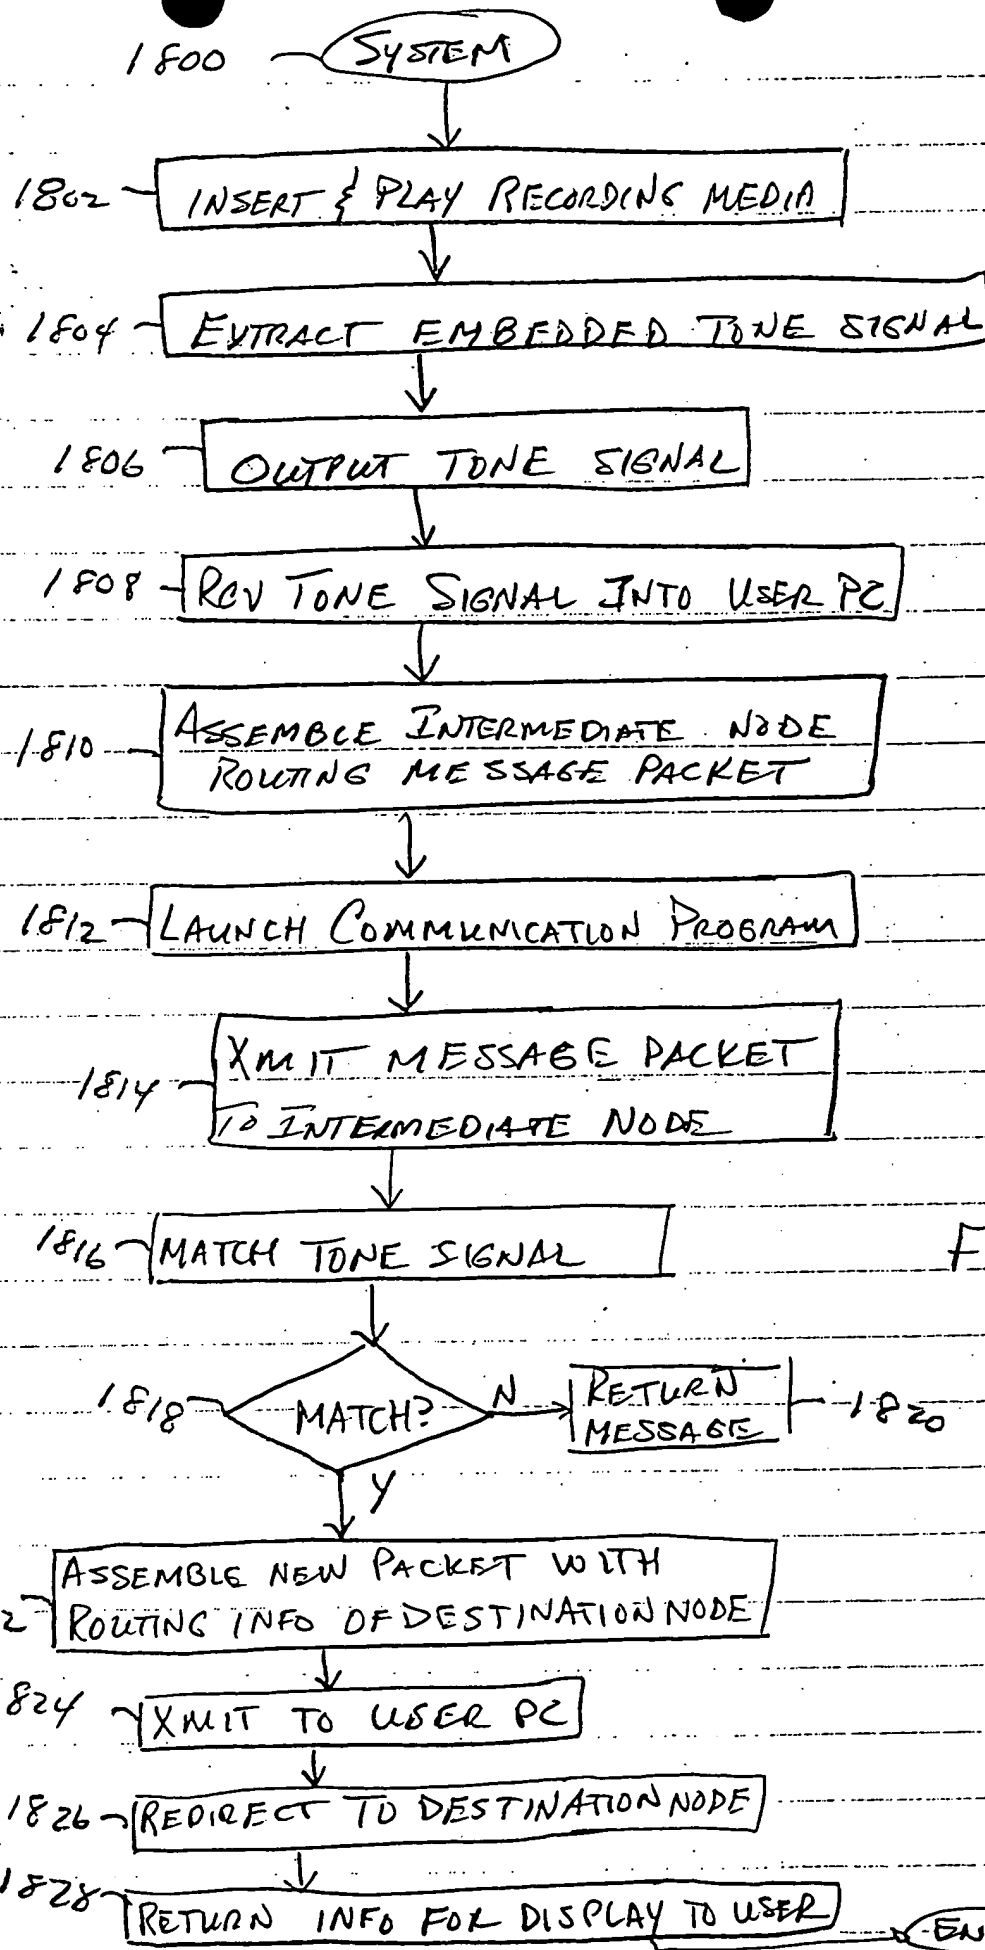 1800 SYSTEM
1802 INSERT & PLAY RECORDING MEDIA
1804 EXTRACT EMBEDDED TONE SIGNAL
1806 OUTPUT TONE SIGNAL
1808 RCV TONE SIGNAL INTO USER PC
1810 ASSEMBLE INTERMEDIATE NODE
ROUTING MESSAGE PACKET
1812 LAUNCH COMMUNICATION PROGRAM
XMIT MESSAGE PACKET
1814
TO INTERMEDIATE NODE
1816 MATCH TONE SIGNAL
F
1818 MATCH? N RETURN
MESSAGE 1820
Y
ASSEMBLE NEW PACKET WITH
2 ROUTING INFO OF DESTINATION NODE
824 XMIT TO USER PC
1826 REDIRECT TO DESTINATION NODE
1828 RETURN INFO FOR DISPLAY TO USER
EN